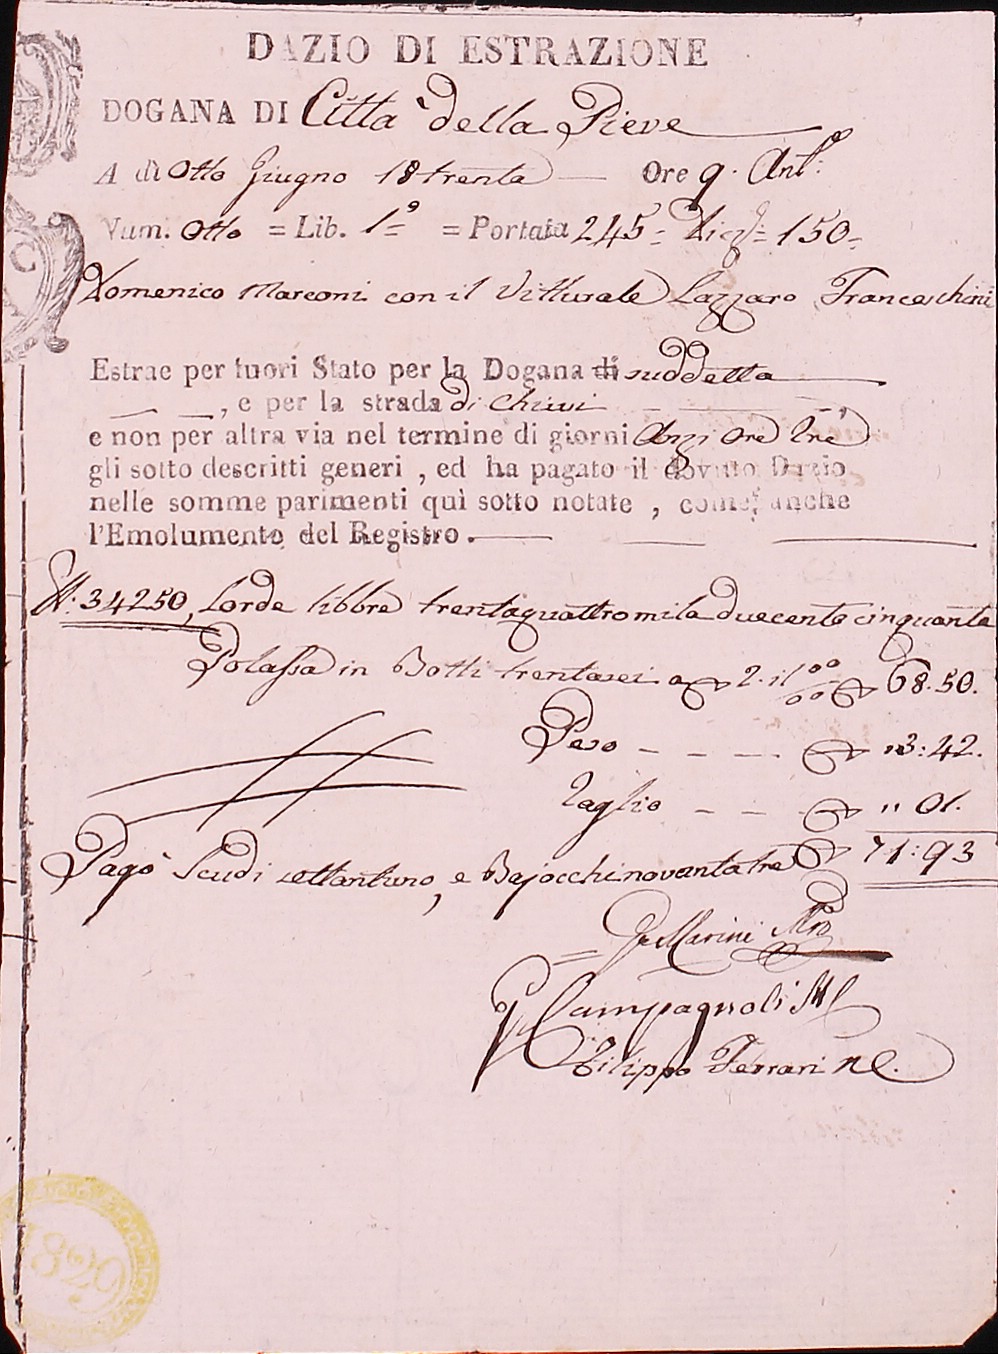 DAZIO DI ESTRAZIONE
DOGANA DI Città della Pieve
A di Otto Giugno 18trenta — Ore 9. Ant:
Num. Otto = Lib. 1° = Portata 245 = = 150 =
Domenico Marconi con il Vitturale Lazzaro Franceschini
Estrae per fuori Stato per la Dogana di suddetta
, e per la strada di Chiusi
e non per altra via nel termine di giorni Anzi ore tre
gli sotto descritti generi , ed ha pagato il dovuto Dazio
nelle somme parimenti quì sotto notate , come anche
l'Emolumento del Registro .
34250, Lorde libbre trentaquattromila duecento cinquanta
Potassa in Botti trentasei a 2. il 68.50.
Peso - - - - 3:42.
Taglio - - - " 01.
Pagò Scudi settantuno, e Bajocchi novantatre 71:93
Marini
Campagnoli
Filippo Ferrari
1829